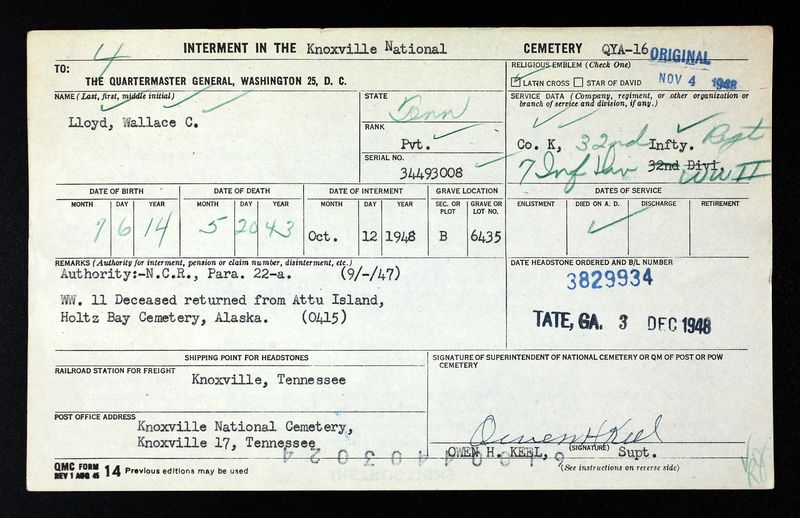 4
INTERMENT IN THE Knoxville National CEMETERY QYA-16
ORIGINAL
NOV 4 1948
TO:
THE QUARTERMASTER GENERAL, WASHINGTON 25, D. C.
RELIGIOUS EMBLEM (Check One)
LATIN CROSS STAR OF DAVID
NAME (Last, first, middle initial)
Lloyd, Wallace C.
STATE
Tenn
RANK
Pvt.
SERIAL NO.
34493008
SERVICE DATA (Company, regiment, or other organization or branch of service and division, if any.)
Co. K, 32nd Infty. Regt
7 Inf Div 32nd Divi. WW II
DATE OF BIRTH DATE OF DEATH DATE OF INTERMENT GRAVE LOCATION DATES OF SERVICE
MONTH DAY YEAR MONTH DAY YEAR MONTH DAY YEAR SEC. OR PLOT GRAVE OR LOT NO. ENLISTMENT DIED ON A. D. DISCHARGE RETIREMENT
9 6 14 5 20 43 Oct. 12 1948 B 6435
REMARKS (Authority for interment, pension or claim number, disinterment, etc.)
Authority:-N.C.R., Para. 22-a. (9/-/47)
WW. 11 Deceased returned from Attu Island,
Holtz Bay Cemetery, Alaska. (0415)
DATE HEADSTONE ORDERED AND B/L NUMBER
3829934
TATE, GA. 3 DEC 1948
SHIPPING POINT FOR HEADSTONES
RAILROAD STATION FOR FREIGHT
Knoxville, Tennessee
POST OFFICE ADDRESS
Knoxville National Cemetery,
Knoxville 17, Tennessee
SIGNATURE OF SUPERINTENDENT OF NATIONAL CEMETERY OR QM OF POST OR POW CEMETERY
Owen H Keel
OWEN H. KEEL, (SIGNATURE) Supt.
(See instructions on reverse side)
QMC FORM
REV 1 AUG 45 14 Previous editions may be used